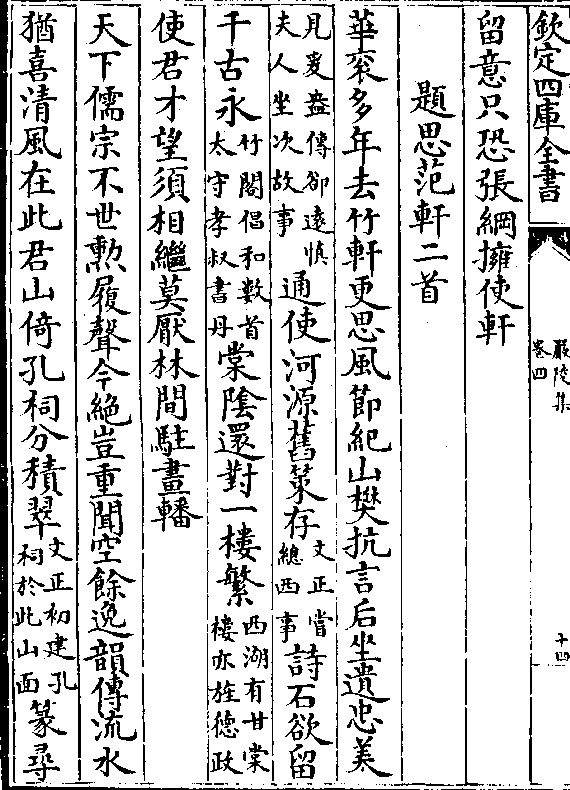 欽定四庫全書
嚴陵集
卷四
十四
留意只恐張綱擁使軒
題思范軒二首
華衮多年去竹軒更思風節紀山樊抗言后坐遺忠美
見爰盎傳卻遠慎夫人坐次故事通使河源舊策存文正嘗總西事詩石欲留
千古永竹閣倡和數首太守孝叔書丹棠陰還對一樓繁西湖有甘棠樓亦旌德政
使君才望須相繼莫厭林間駐畫轓
天下儒宗不世勲履聲今絶豈重聞空餘逸韻傳流水
猶喜清風在此君山倚孔祠分積翠文正初建孔祠於此山面篆尋